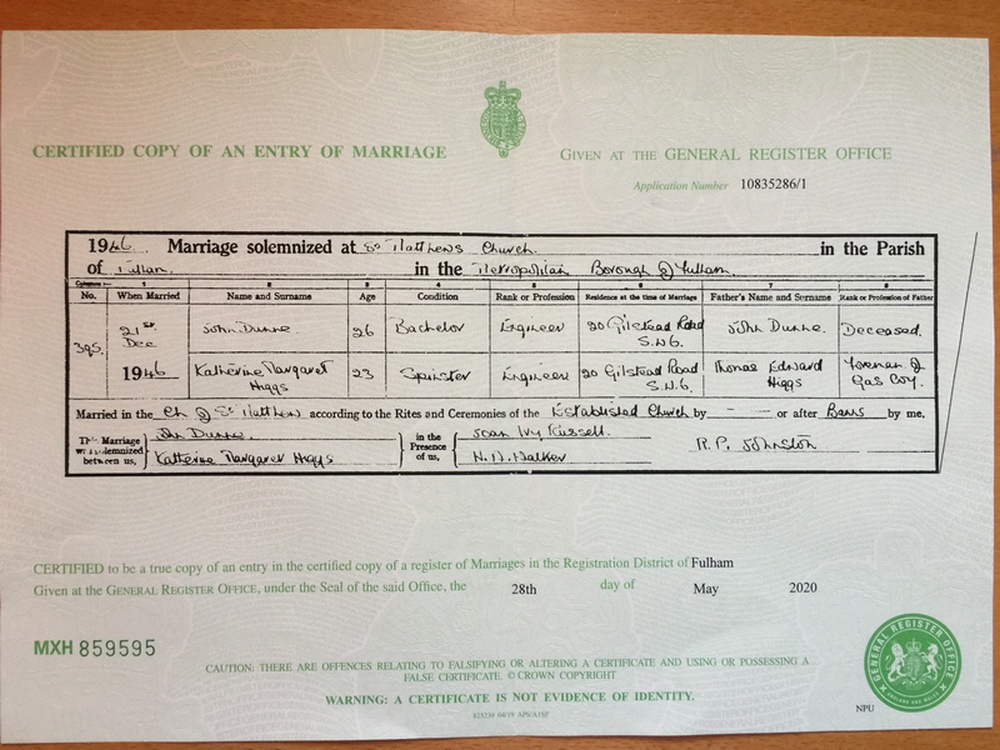 CERTIFIED COPY OF AN ENTRY OF MARRIAGE
GIVEN AT THE GENERAL REGISTER OFFICE
Application Number 10835286/1
1946. Marriage solemnized at St Matthews Church. in the Parish
of Fulham. in the Metropolitan Borough of Fulham.
Columns:— 1 2 3 4 5 6 7 8
No. When Married Name and Surname Age Condition Rank or Profession Residence at the time of Marriage Father's Name and Surname Rank or Profession of Father
395. 21st Dec 1946
John Dunne. 26 Bachelor Engineer 20 Gilstead Road S.W.6. John Dunne. Deceased.
Katherine Margaret Higgs 23 Spinster Engineer 20 Gilstead Road S.W.6. Thomas Edward Higgs Foreman of Gas Coy.
Married in the Ch of St Matthew according to the Rites and Ceremonies of the Established Church by — — or after Banns by me,
This Marriage was solemnized between us,
John Dunne.
Katherine Margaret Higgs
in the Presence of us,
Joan Ivy Russell.
Walker
R.P. Johnston
CERTIFIED to be a true copy of an entry in the certified copy of a register of Marriages in the Registration District of Fulham
Given at the GENERAL REGISTER OFFICE, under the Seal of the said Office, the 28th day of May 2020
MXH 859595
CAUTION: THERE ARE OFFENCES RELATING TO FALSIFYING OR ALTERING A CERTIFICATE AND USING OR POSSESSING A
FALSE CERTIFICATE. © CROWN COPYRIGHT
WARNING: A CERTIFICATE IS NOT EVIDENCE OF IDENTITY.
GENERAL REGISTER OFFICE
ENGLAND AND WALES
NPU